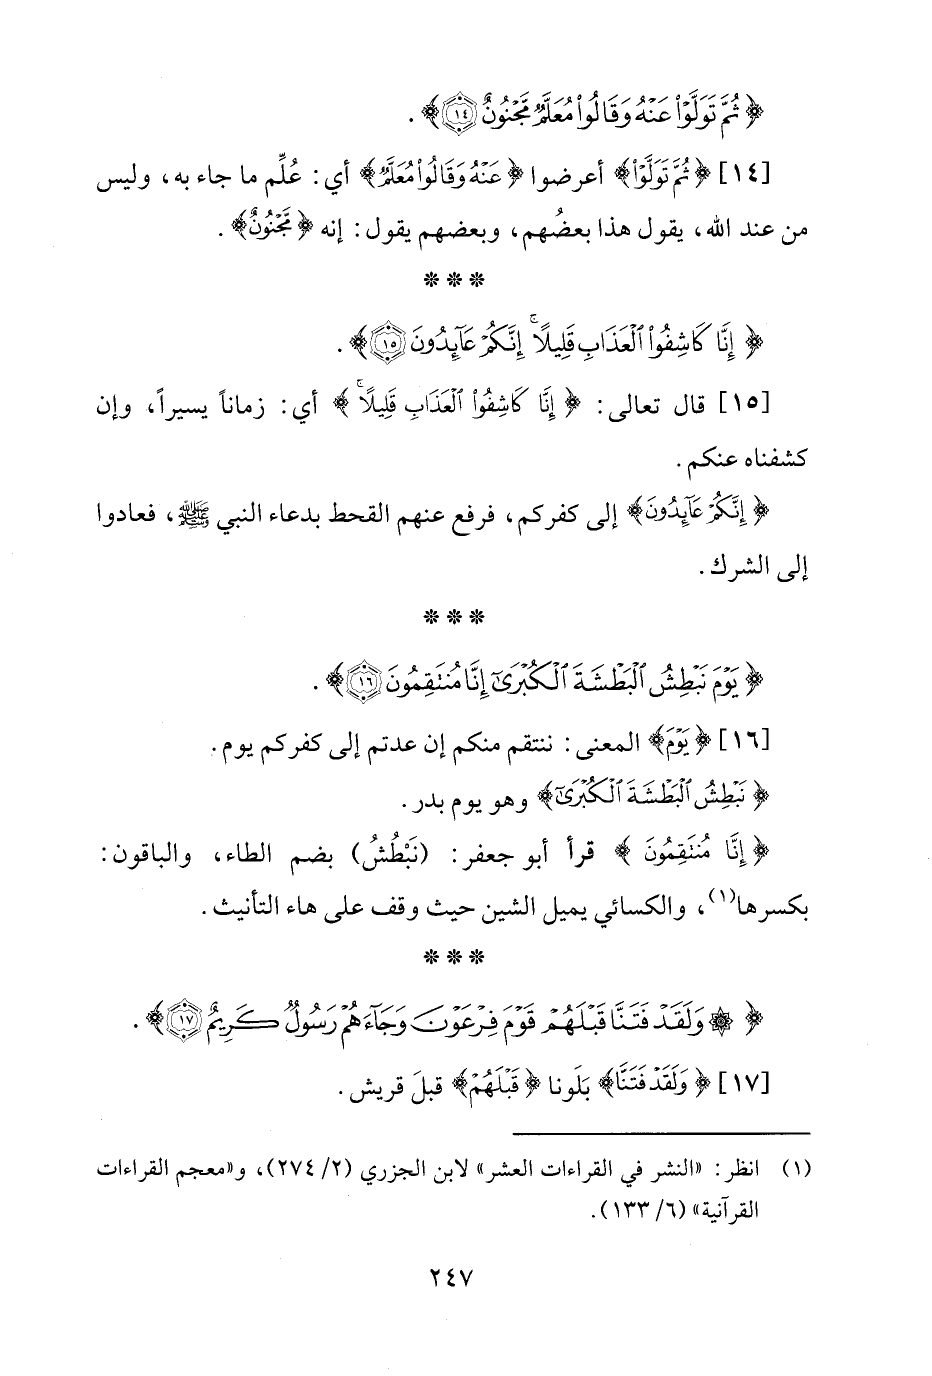 ﴿ ثُمَّ تَوَلَّوْا۟ عَنْهُ وَقَالُوا۟ مُعَلَّمٌ مَّجْنُونٌ ۝١٤ ﴾ .
[١٤] ﴿ ثُمَّ تَوَلَّوْا۟ ﴾ أعرضوا ﴿ عَنْهُ وَقَالُوا۟ مُعَلَّمٌ ﴾ أي: عُلِّم ما جاء به، وليس
من عند الله، يقول هذا بعضُهم، وبعضهم يقول: إنه ﴿ مَّجْنُونٌ ﴾ .
* * *
﴿ إِنَّا كَاشِفُوا۟ ٱلْعَذَابِ قَلِيلًا ۚ إِنَّكُمْ عَآئِدُونَ ۝١٥ ﴾ .
[١٥] قال تعالى: ﴿ إِنَّا كَاشِفُوا۟ ٱلْعَذَابِ قَلِيلًا ۚ ﴾ أي: زماناً يسيراً، وإن
كشفناه عنكم .
﴿ إِنَّكُمْ عَآئِدُونَ ﴾ إلى كفركم، فرفع عنهم القحط بدعاء النبي ﷺ، فعادوا
إلى الشرك .
* * *
﴿ يَوْمَ نَبْطِشُ ٱلْبَطْشَةَ ٱلْكُبْرَىٰٓ إِنَّا مُنتَقِمُونَ ۝١٦ ﴾ .
[١٦] ﴿ يَوْمَ ﴾ المعنى: ننتقم منكم إن عدتم إلى كفركم يوم .
﴿ نَبْطِشُ ٱلْبَطْشَةَ ٱلْكُبْرَىٰٓ ﴾ وهو يوم بدر .
﴿ إِنَّا مُنتَقِمُونَ ﴾ قرأ أبو جعفر: (نَبْطُشُ) بضم الطاء، والباقون:
بكسرها(١)، والكسائي يميل الشين حيث وقف على هاء التأنيث .
* * *
﴿ ۞ وَلَقَدْ فَتَنَّا قَبْلَهُمْ قَوْمَ فِرْعَوْنَ وَجَآءَهُمْ رَسُولٌ كَرِيمٌ ۝١٧ ﴾ .
[١٧] ﴿ وَلَقَدْ فَتَنَّا ﴾ بَلَونا ﴿ قَبْلَهُمْ ﴾ قبلَ قريش .
(١) انظر: «النشر في القراءات العشر» لابن الجزري (٢/ ٢٧٤)، و«معجم القراءات
القرآنية» (٦/ ١٣٣).
٢٤٧